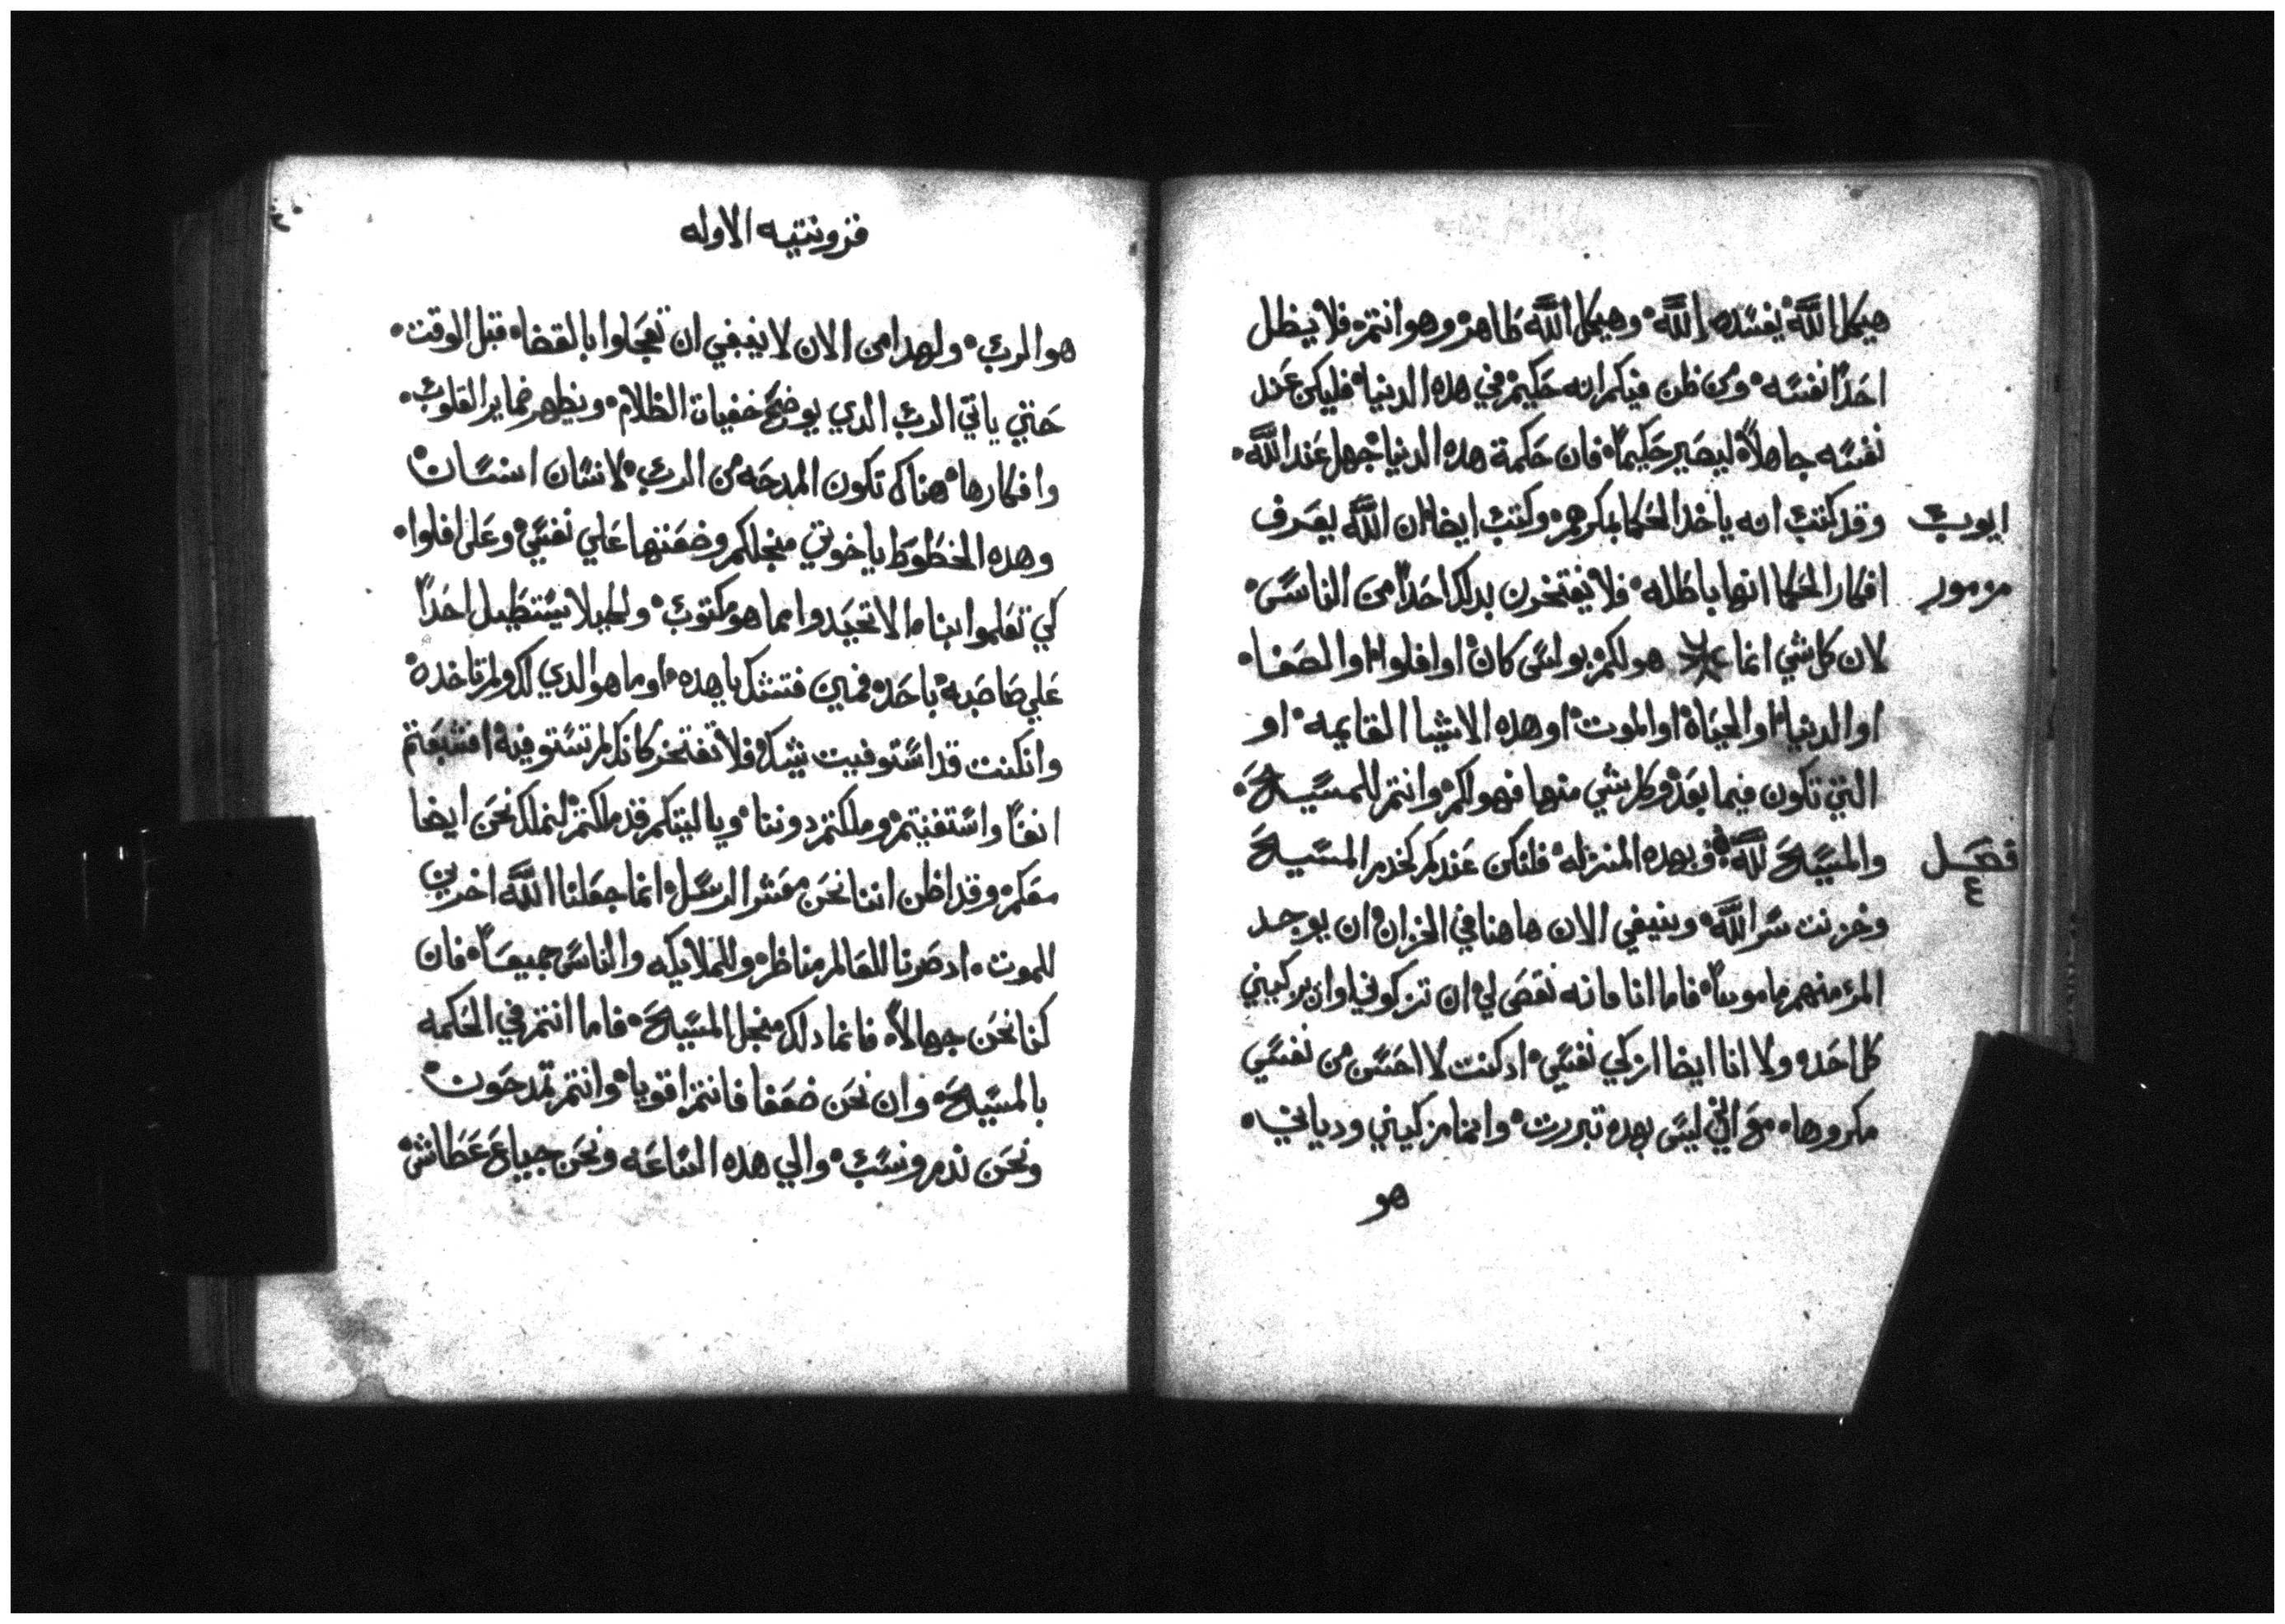 هيكل الله يفسده الله وهيكل الله طاهر وهو انتم فلا يظل
احدًا نفسه ومن ظن فيكم انه حكيم في هده الدنيا فليكن عند
نفسه جاهلاً ليصير حكيمًا فان حكمة هده الدنيا جهل عند الله
ايوب
وقد كتب انه ياخد الحكما بمكرهم وكتب ايضا ان الله يعرف
مزمور
افكار الحكما انها باطله فلا يفتخرن بدلك احدًا من الناس
لان كل شي انما هو لكم بولس كان او افلوا او الصفا
او الدنيا او الحياة او الموت او هده الاشيا القايمه او
التي تكون فيما بعد وكل شي منها فهو لكم وانتم للمسيح
فصل ٤
والمسيح لله وبهده المنزله فلنكن عندكم كخدم المسيح
وخزنت سر الله وينبغي الان هاهنا في الخزان ان يوجد
المر منهم مامونًا فاما انا فانه نقص لي ان تزكوني او ان يزكيني
كل احد ولا انا ايضا ازكي نفسي اد كنت لا احس من نفسي
مكروها مع اني ليس بهده تبررت وانما مزكيني ودياني
هو
٤٠
قرونتيه الاوله
هو الرب ولهدا من الان لا ينبغي ان تعجلوا بالقضا قبل الوقت
حتي ياتي الرب الدي يوضح خفيات الظلام ويظهر ضماير القلوب
وافكارها هناك تكون المدحه من الرب لانسان انسان
وهده الخطوط ياخوتي منجلكم وضعتها علي نفسي وعلى افلوا
كي تعلموا بنا الا تحيدوا مما هو مكتوب ولحيلا يستطيل احدًا
علي صاحبه باحد فمين فتشك ياهده او ما هو الدي لك ولم تاخده
وانكنت قد استوفيت شيك فلا تفتخر كانك لم تستوفيه افشبعتم
انفًا واستغنيتم وملكتم دوننا وياليتكم قد ملكتم لنملك نحن ايضا
معكم وقد اظن اننا نحن معشر الرسل انما جعلنا الله اخرين
للموت اد صرنا للعالم مناظر وللملايكه والناس جميعًا فان
كنا نحن جهالاً فانما دلك منجل المسيح فاما انتم في الحكمه
بالمسيح وان نحن ضعفا فانتم اقويا وانتم تمدحون
ونحن ندم ونسب والي هده الساعه ونحن جياع عطاش